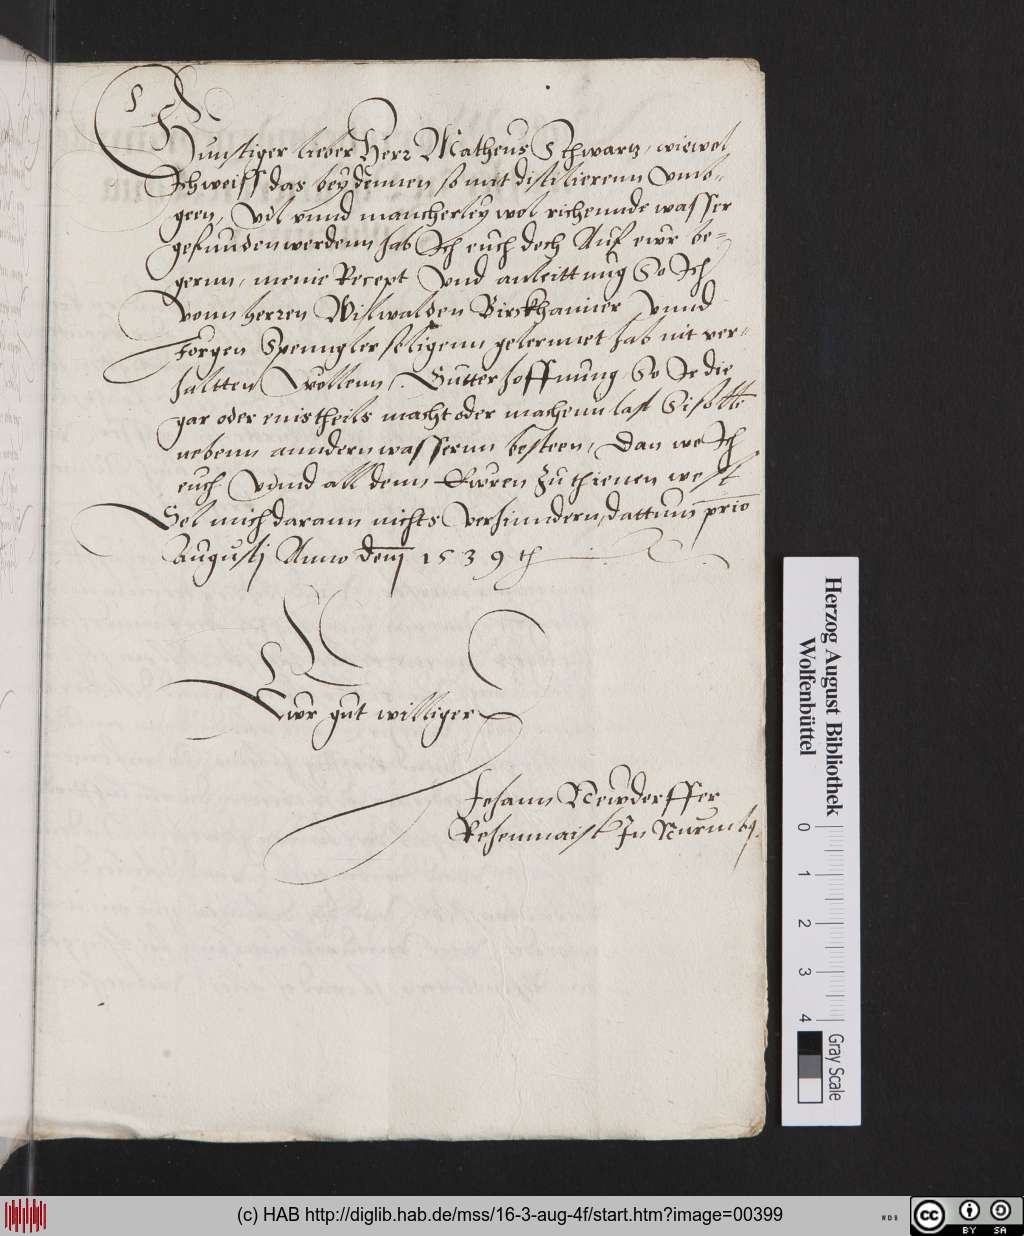 Gunstiger lieber Herr Matheus Schwartz, wiewol
Ich weiss das bey dennen so mit distilierenn vmb-
geen, vil vnnd mancherley wol richennde wasser
gefunden werdenn hab Ich euch doch Auf ewr be-
gernn, meine Recept vnd anleittung So Ich
vonn herren Wilwalden Birckhaimer vnnd
Jorgen Spenngler seligenn gelernnet hab nit ver-
haltten wollenn, Gutter hoffnung So Ir die
gar oder einstheils macht oder machenn last Si sollten
nebenn anndern wassernn besteen, Dan wo Ich
euch vnnd all denn Ewren zu thienen west
Sol mich darann nichts verhinndern, dattum primo
Augustj Anno dem 1539 th
Ewr gut williger
Johann Newdorffer
Rechenmaister Jn Nurmbg.
Herzog August Bibliothek
Wolfenbüttel
0 1 2 3 4
Gray Scale
(c) HAB http://diglib.hab.de/mss/16-3-aug-4f/start.htm?image=00399
WDB
cc BY SA